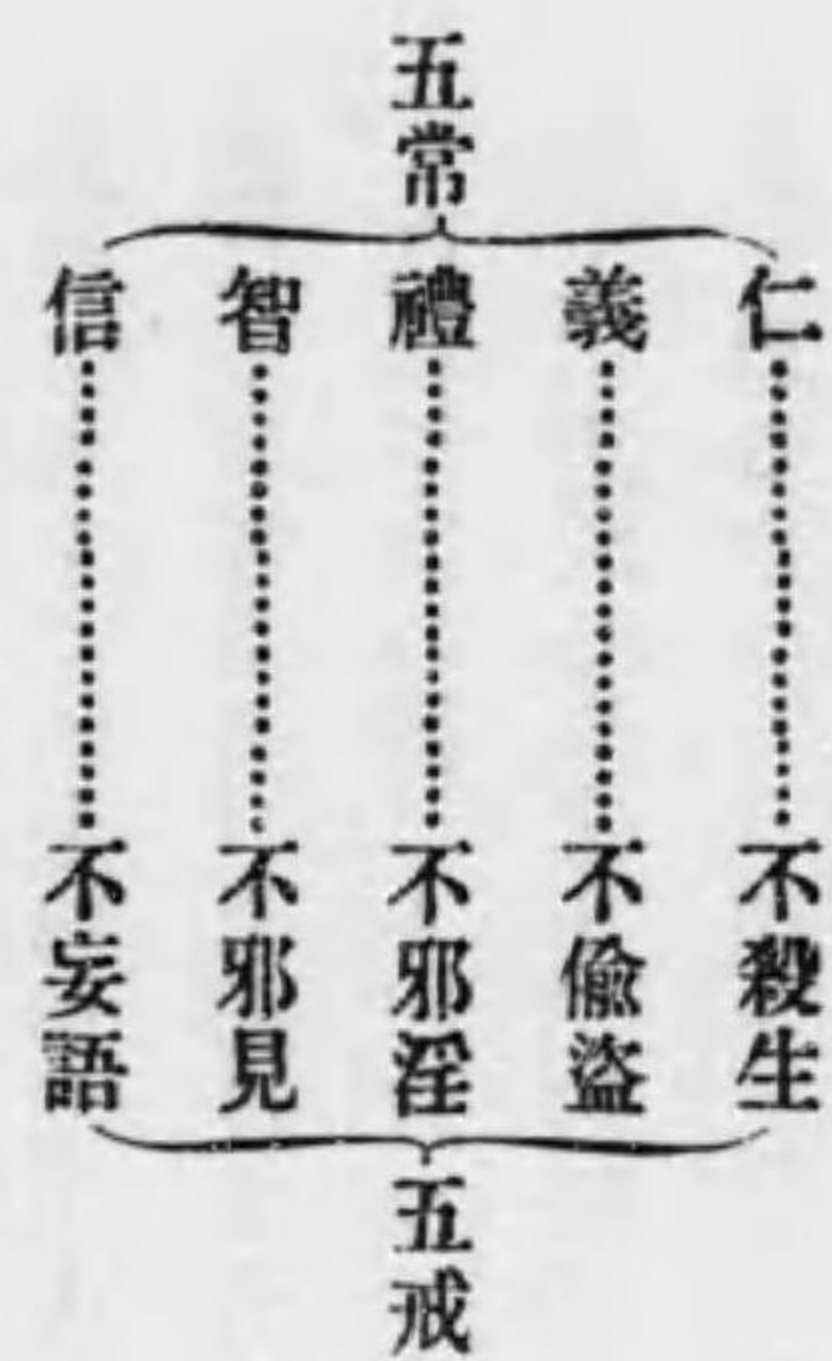 五常
仁 不殺生
義 不偸盜
禮 不邪淫
智 不邪見
信 不妄語
五戒